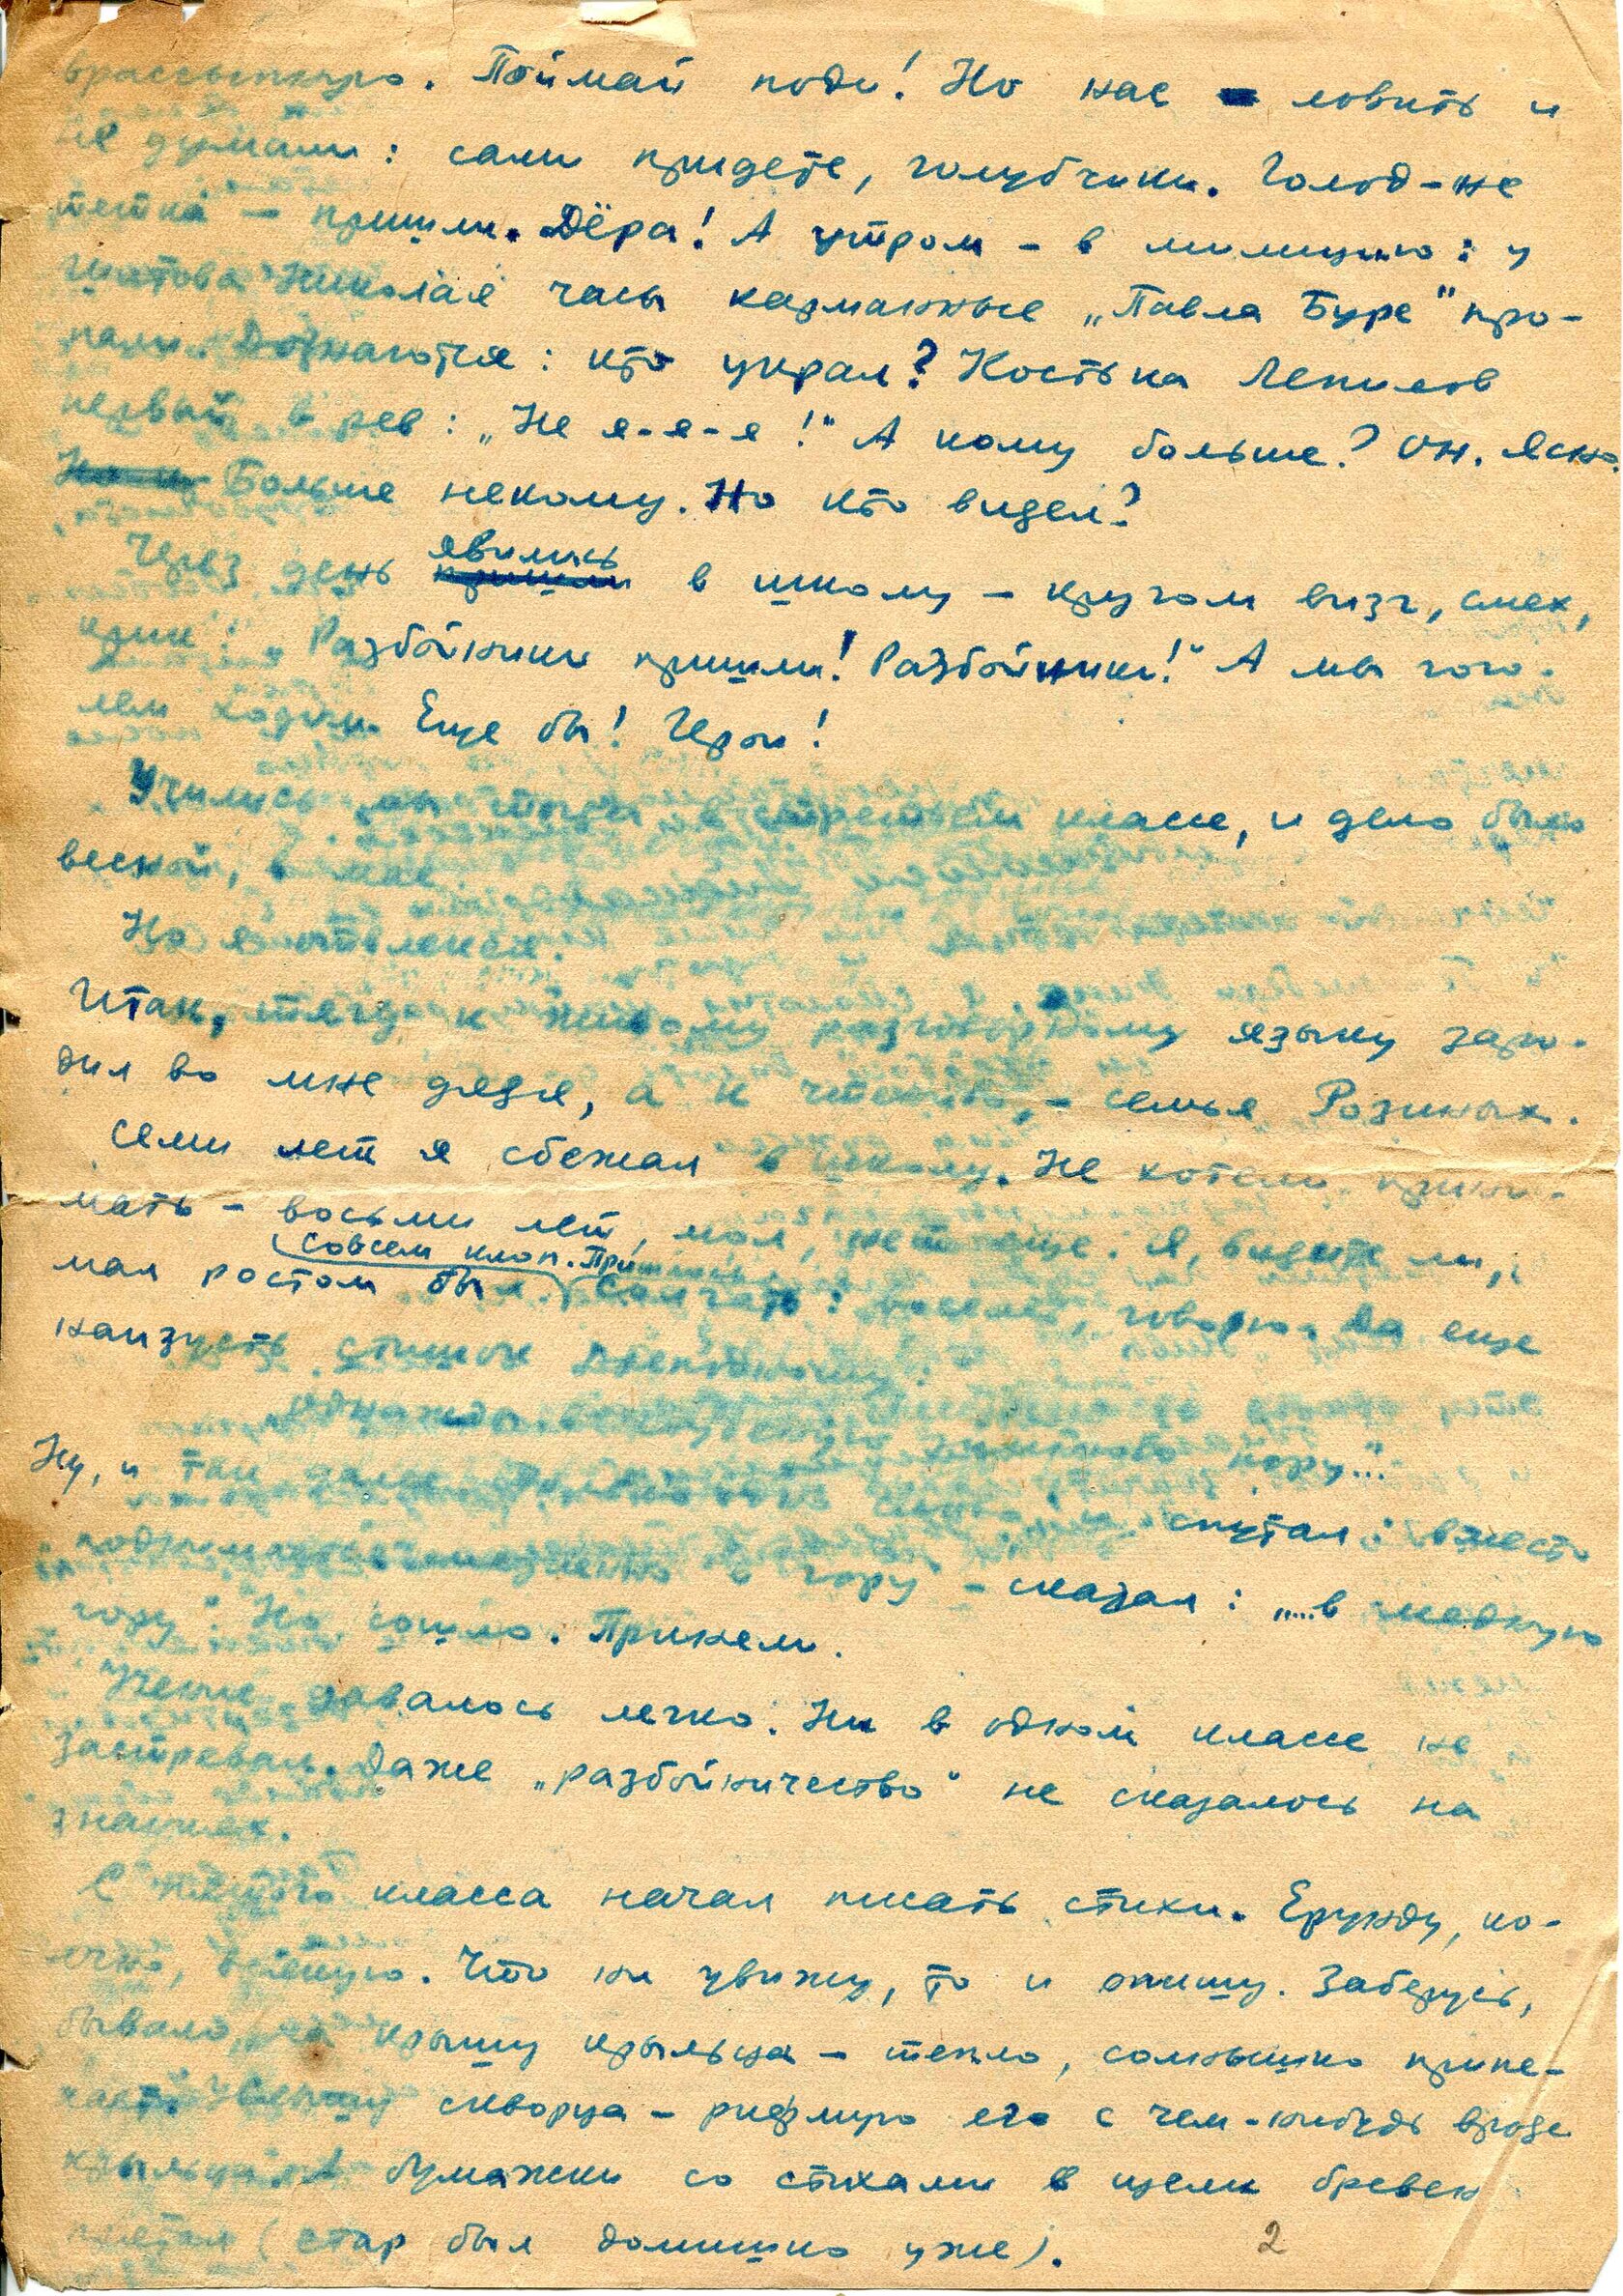 врассыпную. Поймай поди! Но нас ловить и
не думали: сами придете, голубчики. Голод-не
тетка — пришли. Дёра! А утром - в милицию: у
Шитова Николая часы карманные „Павла Буре" про-
пали. Дознаются: кто украл? Костька Лепилов
первый в рев: „Не я-я-я!" А кому больше? Он. Ясно.
Больше некому. Но кто видел?
Через день явились в школу — кругом визг, смех,
крик: „Разбойники пришли! Разбойники!" А мы гого-
лем ходим. Еще бы! Герои!
Учились мы тогда в третьем классе, и дело было
весной, в мае.
Но я отвлекся.
Итак, тягу к живому разговорному языку заро-
дил во мне дядя, а к чтению, - семья Розиных.
Семи лет я сбежал в школу. Не хотели прини-
мать - восьми лет, мол, нет еще. Я, видите ли,
мал ростом был. совсем клоп. Пришлось солгать: восемь, говорю. Да еще
наизусть стишок
Однажды в студеную зимнюю пору..."
Ну, и так далее. спутал: вместо
в гору" - сказал: „...в медную
гору". Но сошло. Приняли.
Ученье давалось легко. Ни в одном классе не
застревал. Даже „разбойничество" не сказалось на
знаниях.
С пятого класса начал писать стихи. Ерунду, ко-
нечно, всякую. Что ни увижу, то и опишу. Заберусь,
бывало, на крышу крыльца — тепло, солнышко припе-
кает. скворца - рифмую его с чем-нибудь вроде
крыльца. А бумажки со стихами в щели бревен
прятал (стар был домишко уже).
2